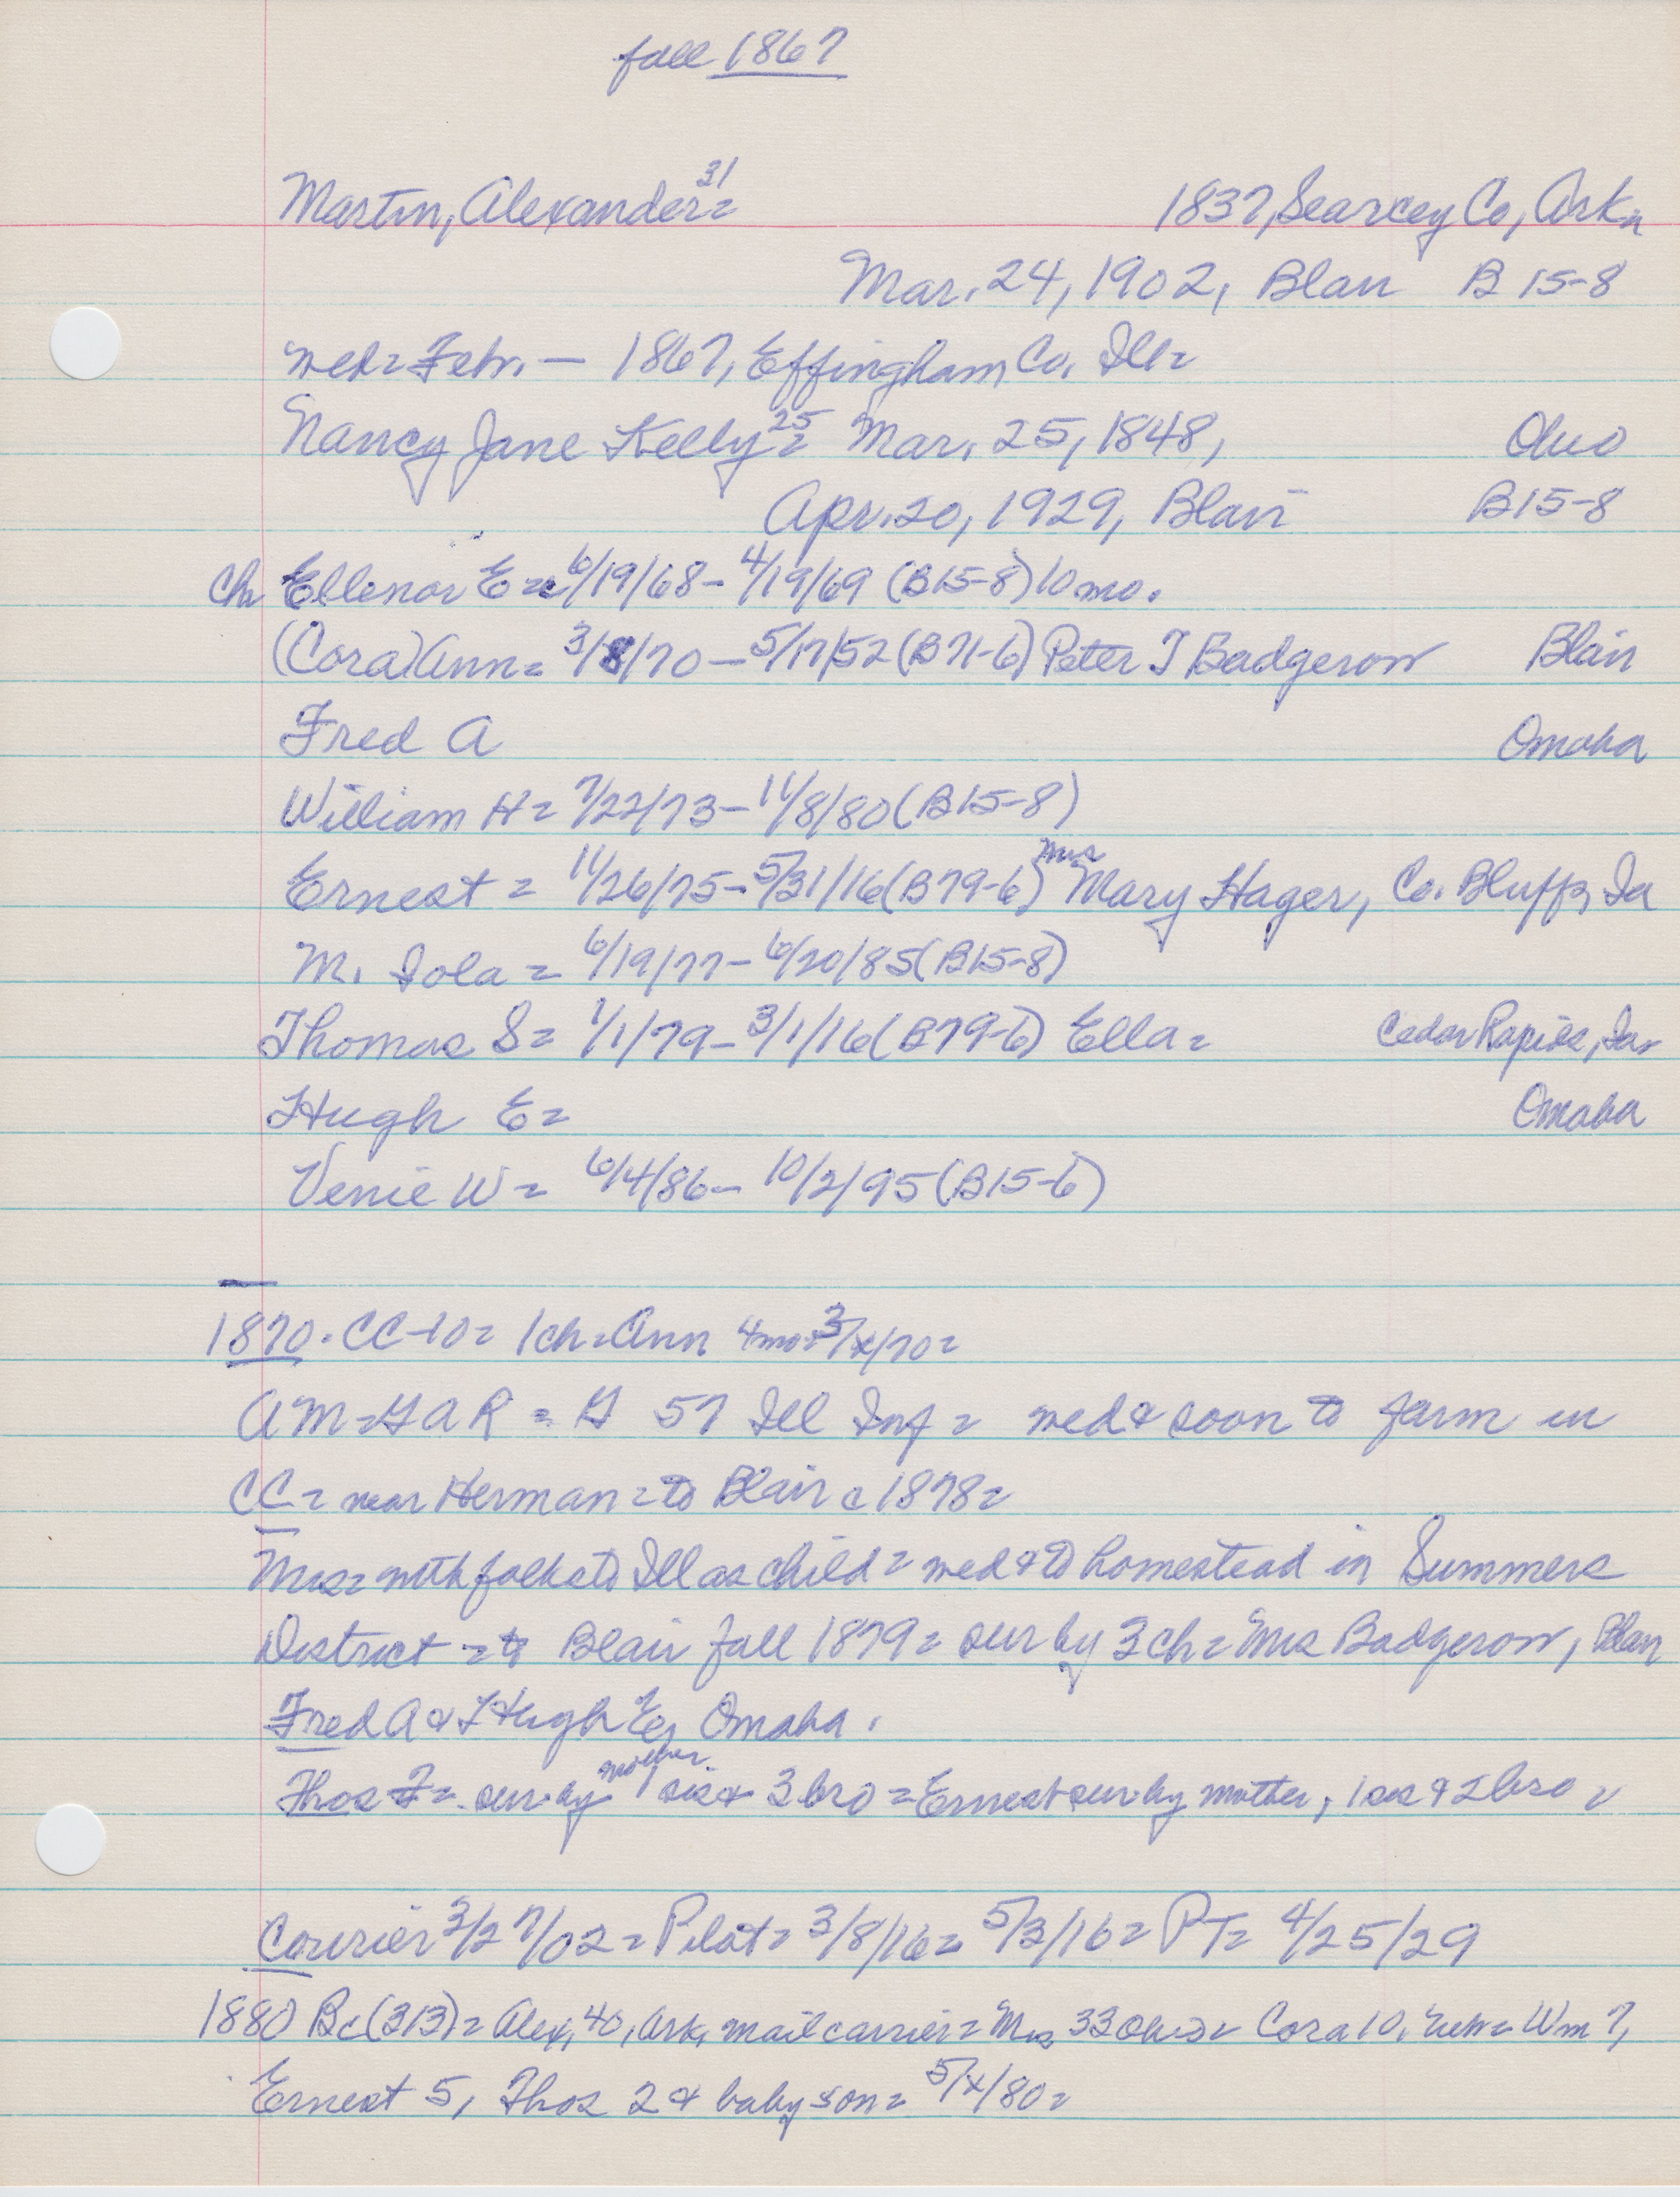 fall 1867
Martin, Alexander= 31 1837, Searcey Co, Ark=
Mar. 24, 1902, Blair B 15-8
med= Febr. — 1867, Effingham Co. Ill=
Nancy Jane Kelly= 25 Mar. 25, 1848, Ohio
Apr. 20, 1929, Blair B15-8
Ch Ellenor E= 6/19/68 - 4/19/69 (B15-8) 10 mo.
(Cora) Ann= 3/8/70 - 5/17/52 (B71-6) Peter T Badgerow Blair
Fred A Omaha
William H= 7/22/73 - 11/8/80 (B15-8)
Ernest = 11/26/75 - 5/31/16 (B79-6) Mrs Mary Hager, Co. Bluffs, Ia
M. Iola = 6/19/77 - 6/20/85 (B15-8)
Thomas S= 1/1/79 - 3/1/16 (B79-6) Ella= Cedar Rapids, Ia
Hugh E= Omaha
Venie W= 6/4/86 - 10/2/95 (B15-6)
1870. CC-10= 1ch= Ann 4mo= 3/x/70=
AM=GAR = G 57 Ill Inf = med & soon to farm in
CC= near Herman= to Blair c 1878=
Mrs= with folks to Ill as child= med & to homestead in Summers
District = to Blair fall 1879= sur by 3 ch= Mrs Badgerow, Blair
Fred A & Hugh E, Omaha.
Thos = sur by mother 1 sis & 3 bro = Ernest sur by mother, 1 sis & 2 bro =
Courier 3/27/02= Pilot= 3/8/16= 5/3/16= PT= 4/25/29
1880 Bc (313)= Alex, 40, Ark, mail carrier= Mrs 33 Ohio= Cora 10, Wm 7,
Ernest 5, Thos 2 & baby son= 5/x/80=